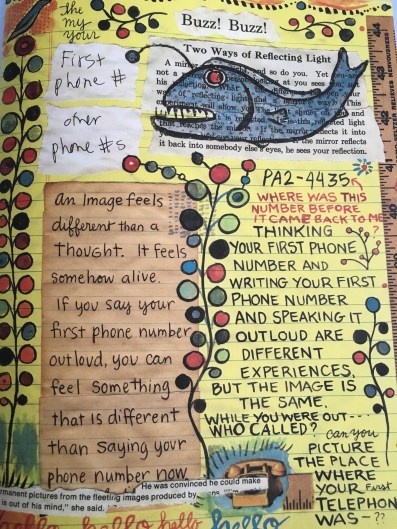 the
my
your
Buzz! Buzz!
First
phone #
other
phone #s
Two Ways of Reflecting Light
and so do you. Yet you
not a
looking at you sees
his reflection.
reflected light
it back into somebody else's eyes, he sees your reflection.
an Image feels
different than a
Thought. It feels
somehow alive.
If you say your
first phone number
outloud, you can
feel something
that is different
than saying your
phone number now
PA2-4435
WHERE WAS THIS
NUMBER BEFORE
IT CAME BACK TO ME
?
THINKING
YOUR FIRST PHONE
NUMBER AND
WRITING YOUR FIRST
PHONE NUMBER
AND SPEAKING IT
OUTLOUD ARE
DIFFERENT
EXPERIENCES,
BUT THE IMAGE IS
THE SAME.
WHILE YOU WERE OUT---
WHO CALLED?
can you
PICTURE
THE PLACE
WHERE
YOUR First
TELEPHONE
WAS - ??
He was convinced he could make
manent pictures from the fleeting images produced by
is out of his mind," she said.
hello hello hello hello
44
43